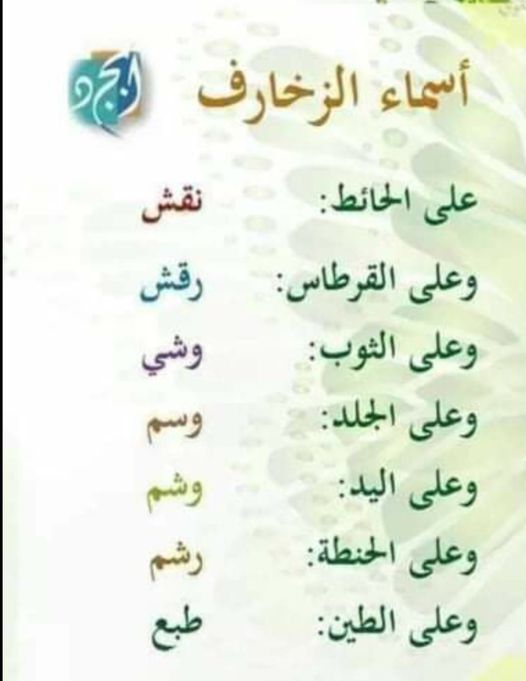 أسماء الزخارف
المجد
على الحائط: نقش
وعلى القرطاس: رقش
وعلى الثوب: وشي
وعلى الجلد: وسم
وعلى اليد: وشم
وعلى الحنطة: رشم
وعلى الطين: طبع